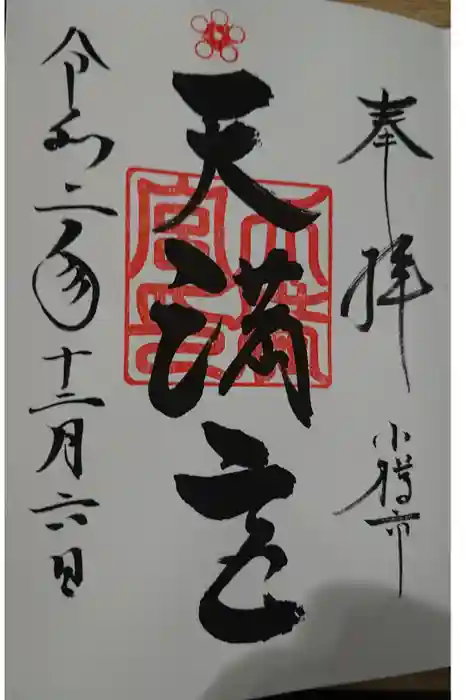 奉拝 小樽市
天満宮
令和二年十二月六日